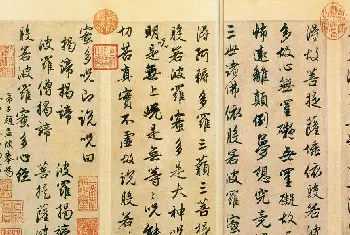 得故菩提薩埵依般若波
多故心無罣礙無罣礙故
怖遠離顛倒夢想究竟
三世諸佛依般若波羅蜜
得阿耨多羅三藐三菩提
般若波羅蜜多是大神咒
明咒是無上咒是無等等咒能
切苦真實不虛故說般若
蜜多咒即說咒曰
揭諦揭諦 波羅揭諦
波羅僧揭諦 菩提薩婆
般若波羅蜜多心經
弟子趙孟頫奉爲